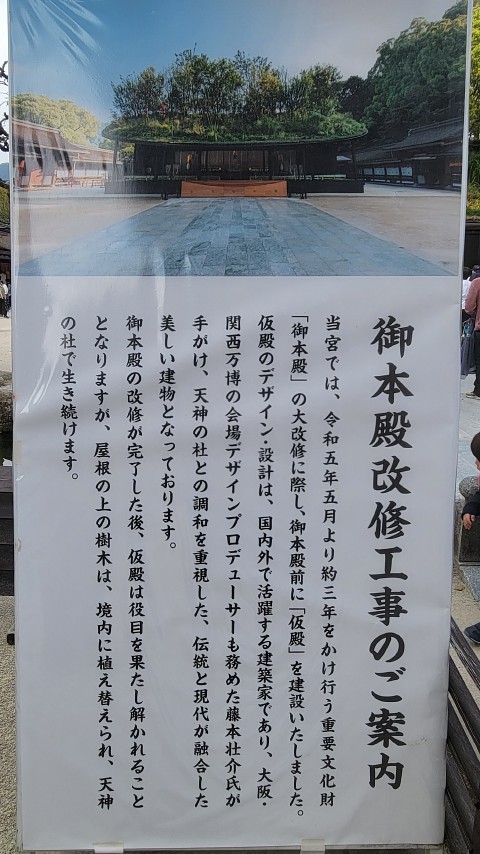 御本殿改修工事のご案内
当宮では、令和五年五月より約三年をかけ行う重要文化財
「御本殿」の大改修に際し、御本殿前に「仮殿」を建設いたしました。
仮殿のデザイン・設計は、国内外で活躍する建築家であり、大阪・
関西万博の会場デザインプロデューサーも務めた藤本壮介氏が
手がけ、天神の杜との調和を重視した、伝統と現代が融合した
美しい建物となっております。
御本殿の改修が完了した後、仮殿は役目を果たし解かれること
となりますが、屋根の上の樹木は、境内に植え替えられ、天神
の杜で生き続けます。